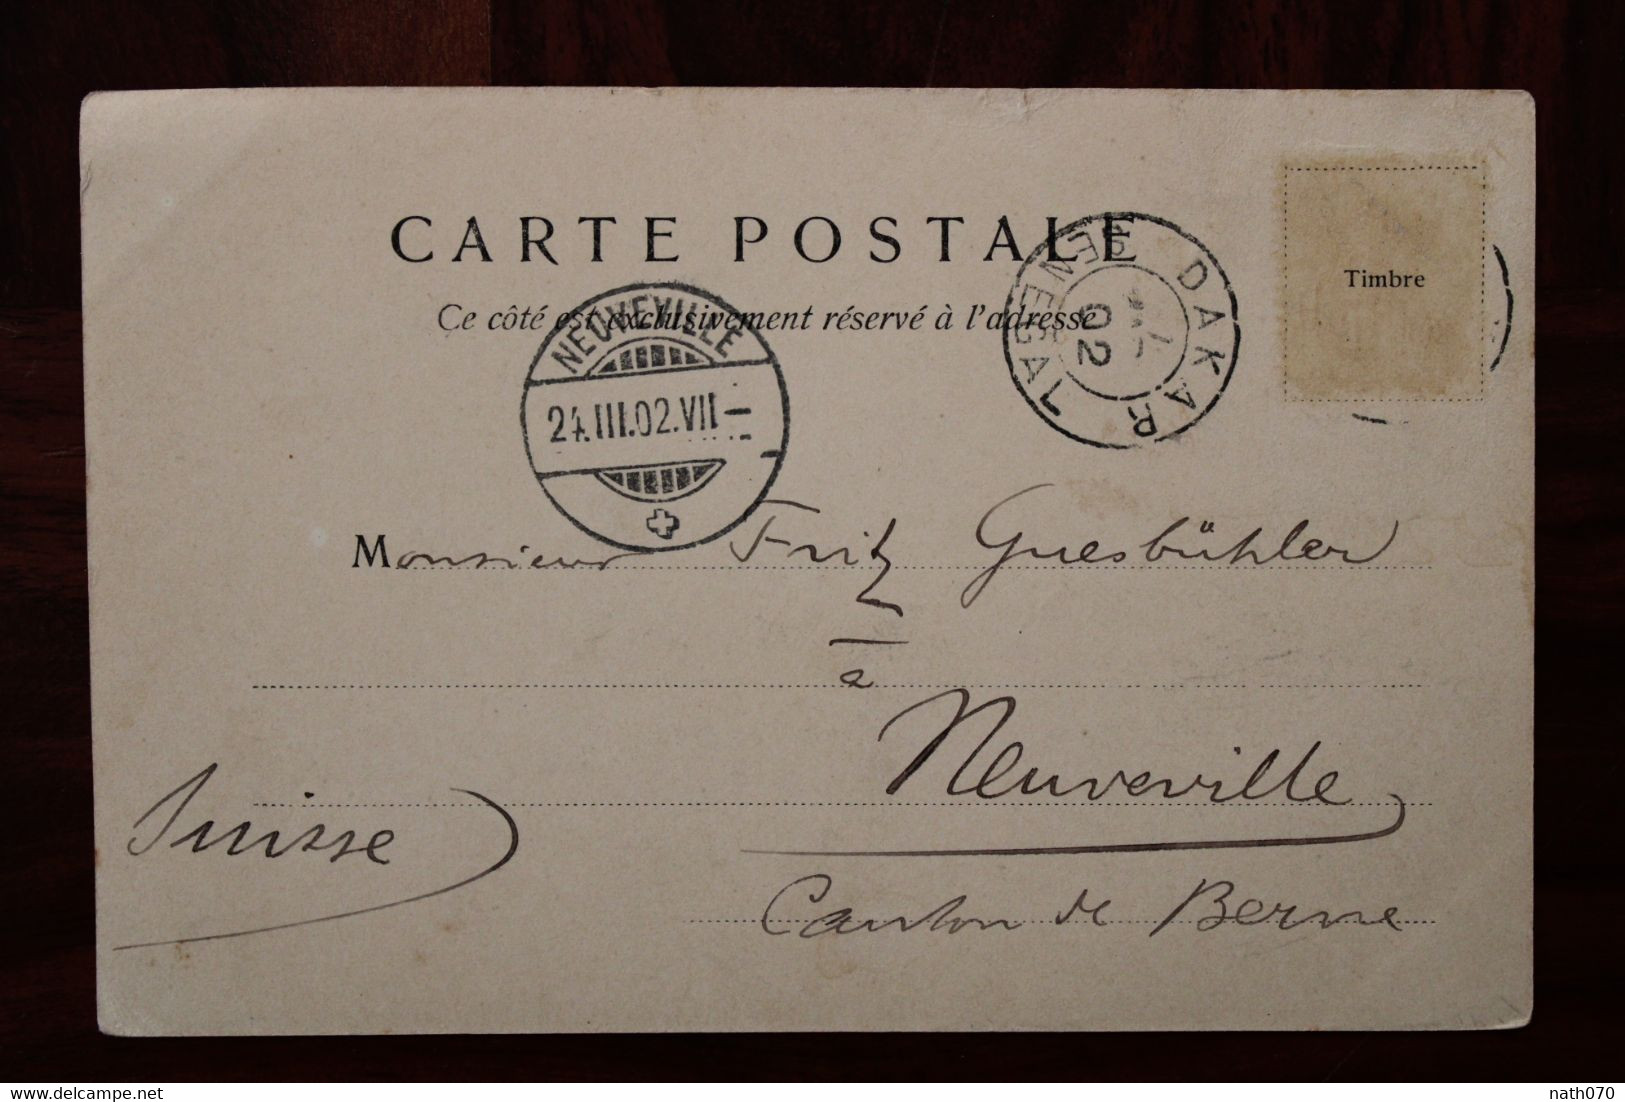 CARTE POSTALE
Ce côté est exclusivement réservé à l'adresse
Timbre
NEUVEVILLE
24.III.02.VII
DAKAR
SENEGAL
02
Monsieur Fritz Guesbühler
a
Neuveville
Suisse
Canton de Berne
delcampe.net
nath070